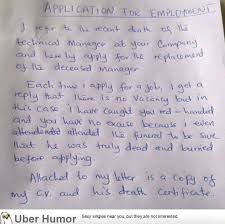 APPLICATION FOR EMPLOYMENT
I refer to the recent death of the
technical Manager at your Company
and hereby apply for the replacement
of the deceased manager.
Each time i apply for a job, I get a
reply that there is no Vacancy but in
this case I have caught you red-handed
and you have no excuse because i even
attended the funeral to be sure
that he was truly dead and buried
before applying.
Attached to my letter is a copy of
my C.V. and his death Certificate.
Uber Humor
Sexy singles near you, but they are not interested.